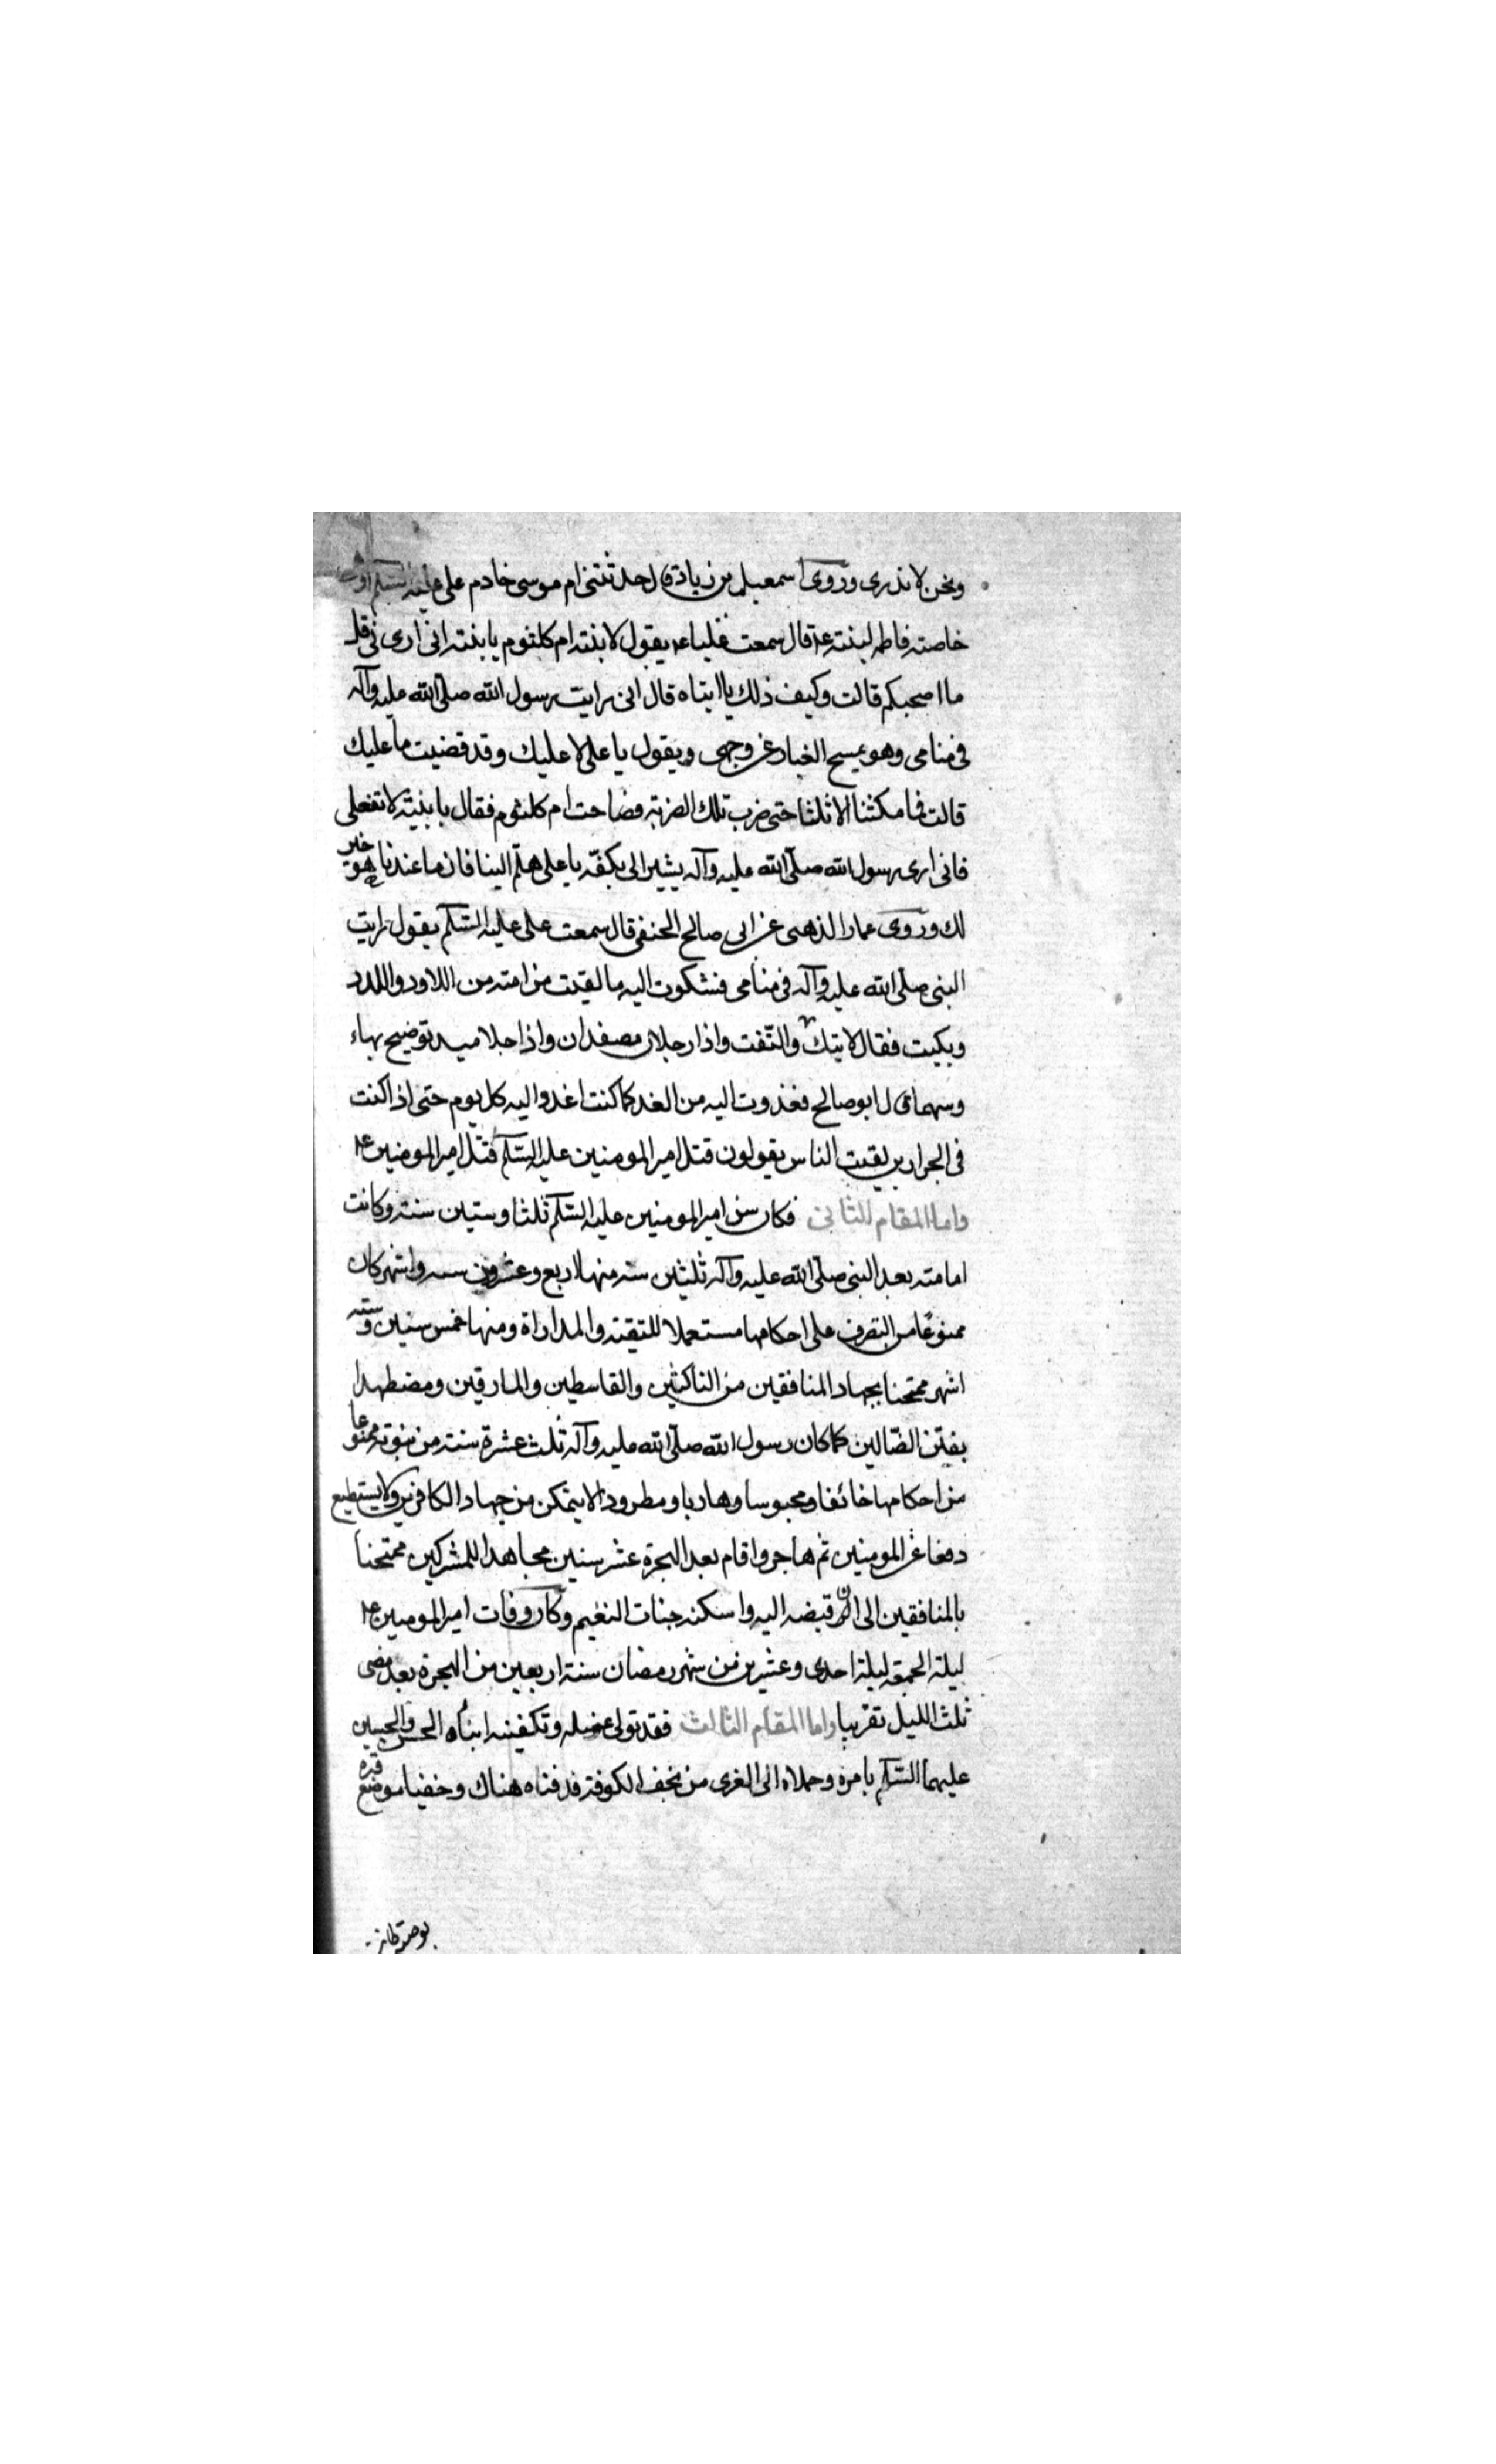 ونحن لا ندرى وروى اسمعيل بن زياد قال حدثتنى ام موسى خادم على عليه السلم
خاصته فاطمه لبنته ع۴ قال سمعت عليا ع۴ يقول لابنته ام كلثوم يا بنته انى ارى نى قل
ما اصحبكم قالت وكيف ذلك يا ابتاه قال انى رايت رسول الله صلى الله عليه وآله
فى منامى وهو يمسح الغبار عن وجهى ويقول يا على لا عليك وقد قضيت ما عليك
قالت فما مكثنا الا ثلثا حتى ضرب تلك الضربة فصاحت ام كلثوم فقال يا بنيته لا تفعلى
فانى ارى رسول الله صلى الله عليه وآله يشير الى بكفه يا على هلم الينا فان ما عندنا هو خير
لك وروى عمار الذهبى عن ابى صالح الحنفى قال سمعت على عليه السلم يقول رايت
النبى صلى الله عليه وآله فى منامى فشكوت اليه ما لقيت من امته من اللاود واللدد
وبكيت فقال لا تبك والتفت واذا رجلان مصفدان واذا جلاميد توضيح بهاء
وسهما قال ابو صالح فغدوت اليه من الغد كما كنت اغدوا اليه كل يوم حتى اذا كنت
فى الجرارين لقيت الناس يقولون قتل امير المومنين عليه السلم قتل امير المومنين ع۴
واما المقام الثانى فكان سن امير المومنين عليه السلم ثلثا وستين سنة وكانت
امامته بعد النبى صلى الله عليه وآله ثلثين سنه منها اربع وعشرون سنه واشهر كان
ممنوعا من التصرف على احكامها مستعملا للتقية والمداراة ومنها خمس سنين وستة
اشهر ممتحنا بجهاد المنافقين من الناكثين والقاسطين والمارقين ومضطهدا
بفتن الضالين كما كان رسول الله صلى الله عليه وآله ثلث عشرة سنة من نبوته ممنوعا
من احكامها خائفا ومحبوسا وهاربا ومطرودا لا يتمكن من جهاد الكافرين ولا يستطيع
دفعا عن المومنين ثم هاجر واقام بعد الهجرة عشر سنين مجاهدا للمشركين ممتحنا
بالمنافقين الى ان قبضه اليه واسكنه جنات النعيم وكان وفات امير المومنين ع۴
ليلة الجمعة ليلة احدى وعشرين من شهر رمضان سنة اربعين من الهجرة بعد مضى
ثلث الليل تقريبا واما المقام الثالث فقد تولى غسله وتكفينه ابناه الحسن والحسين
عليهما السلم بامره وحملاه الى الغرى من نجف الكوفة فدفناه هناك وخفيا موضع قبره